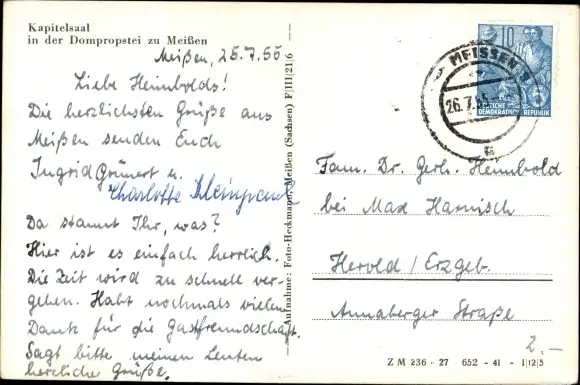 Kapitelsaal
in der Dompropstei zu Meißen
Meißen, 25.7.55
Liebe Heimbolds!
Die herzlichsten Grüße aus
Meißen senden Euch
Ingrid Grünert u.
Charlotte
Da staunt Ihr, was?
Hier ist es einfach herrlich.
Die Zeit wird zu schnell ver-
gehen. Habt nochmals vielen
Dank für die Gastfreundschaft.
Sagt bitte meinen Leuten
herzliche Grüße.
Aufnahme: Foto-Heckmann, Meißen (Sachsen) F|III|21|6
10
MEISSEN
26.7.55
DEUTSCHE
DEMOKRATISCHE REPUBLIK
Fam. Dr. Gerh. Heimbold
bei Max Harnisch
Herold / Erzgeb.
Annaberger Straße
2.-
Z M 236 - 27 652 - 41 - 1|12|5